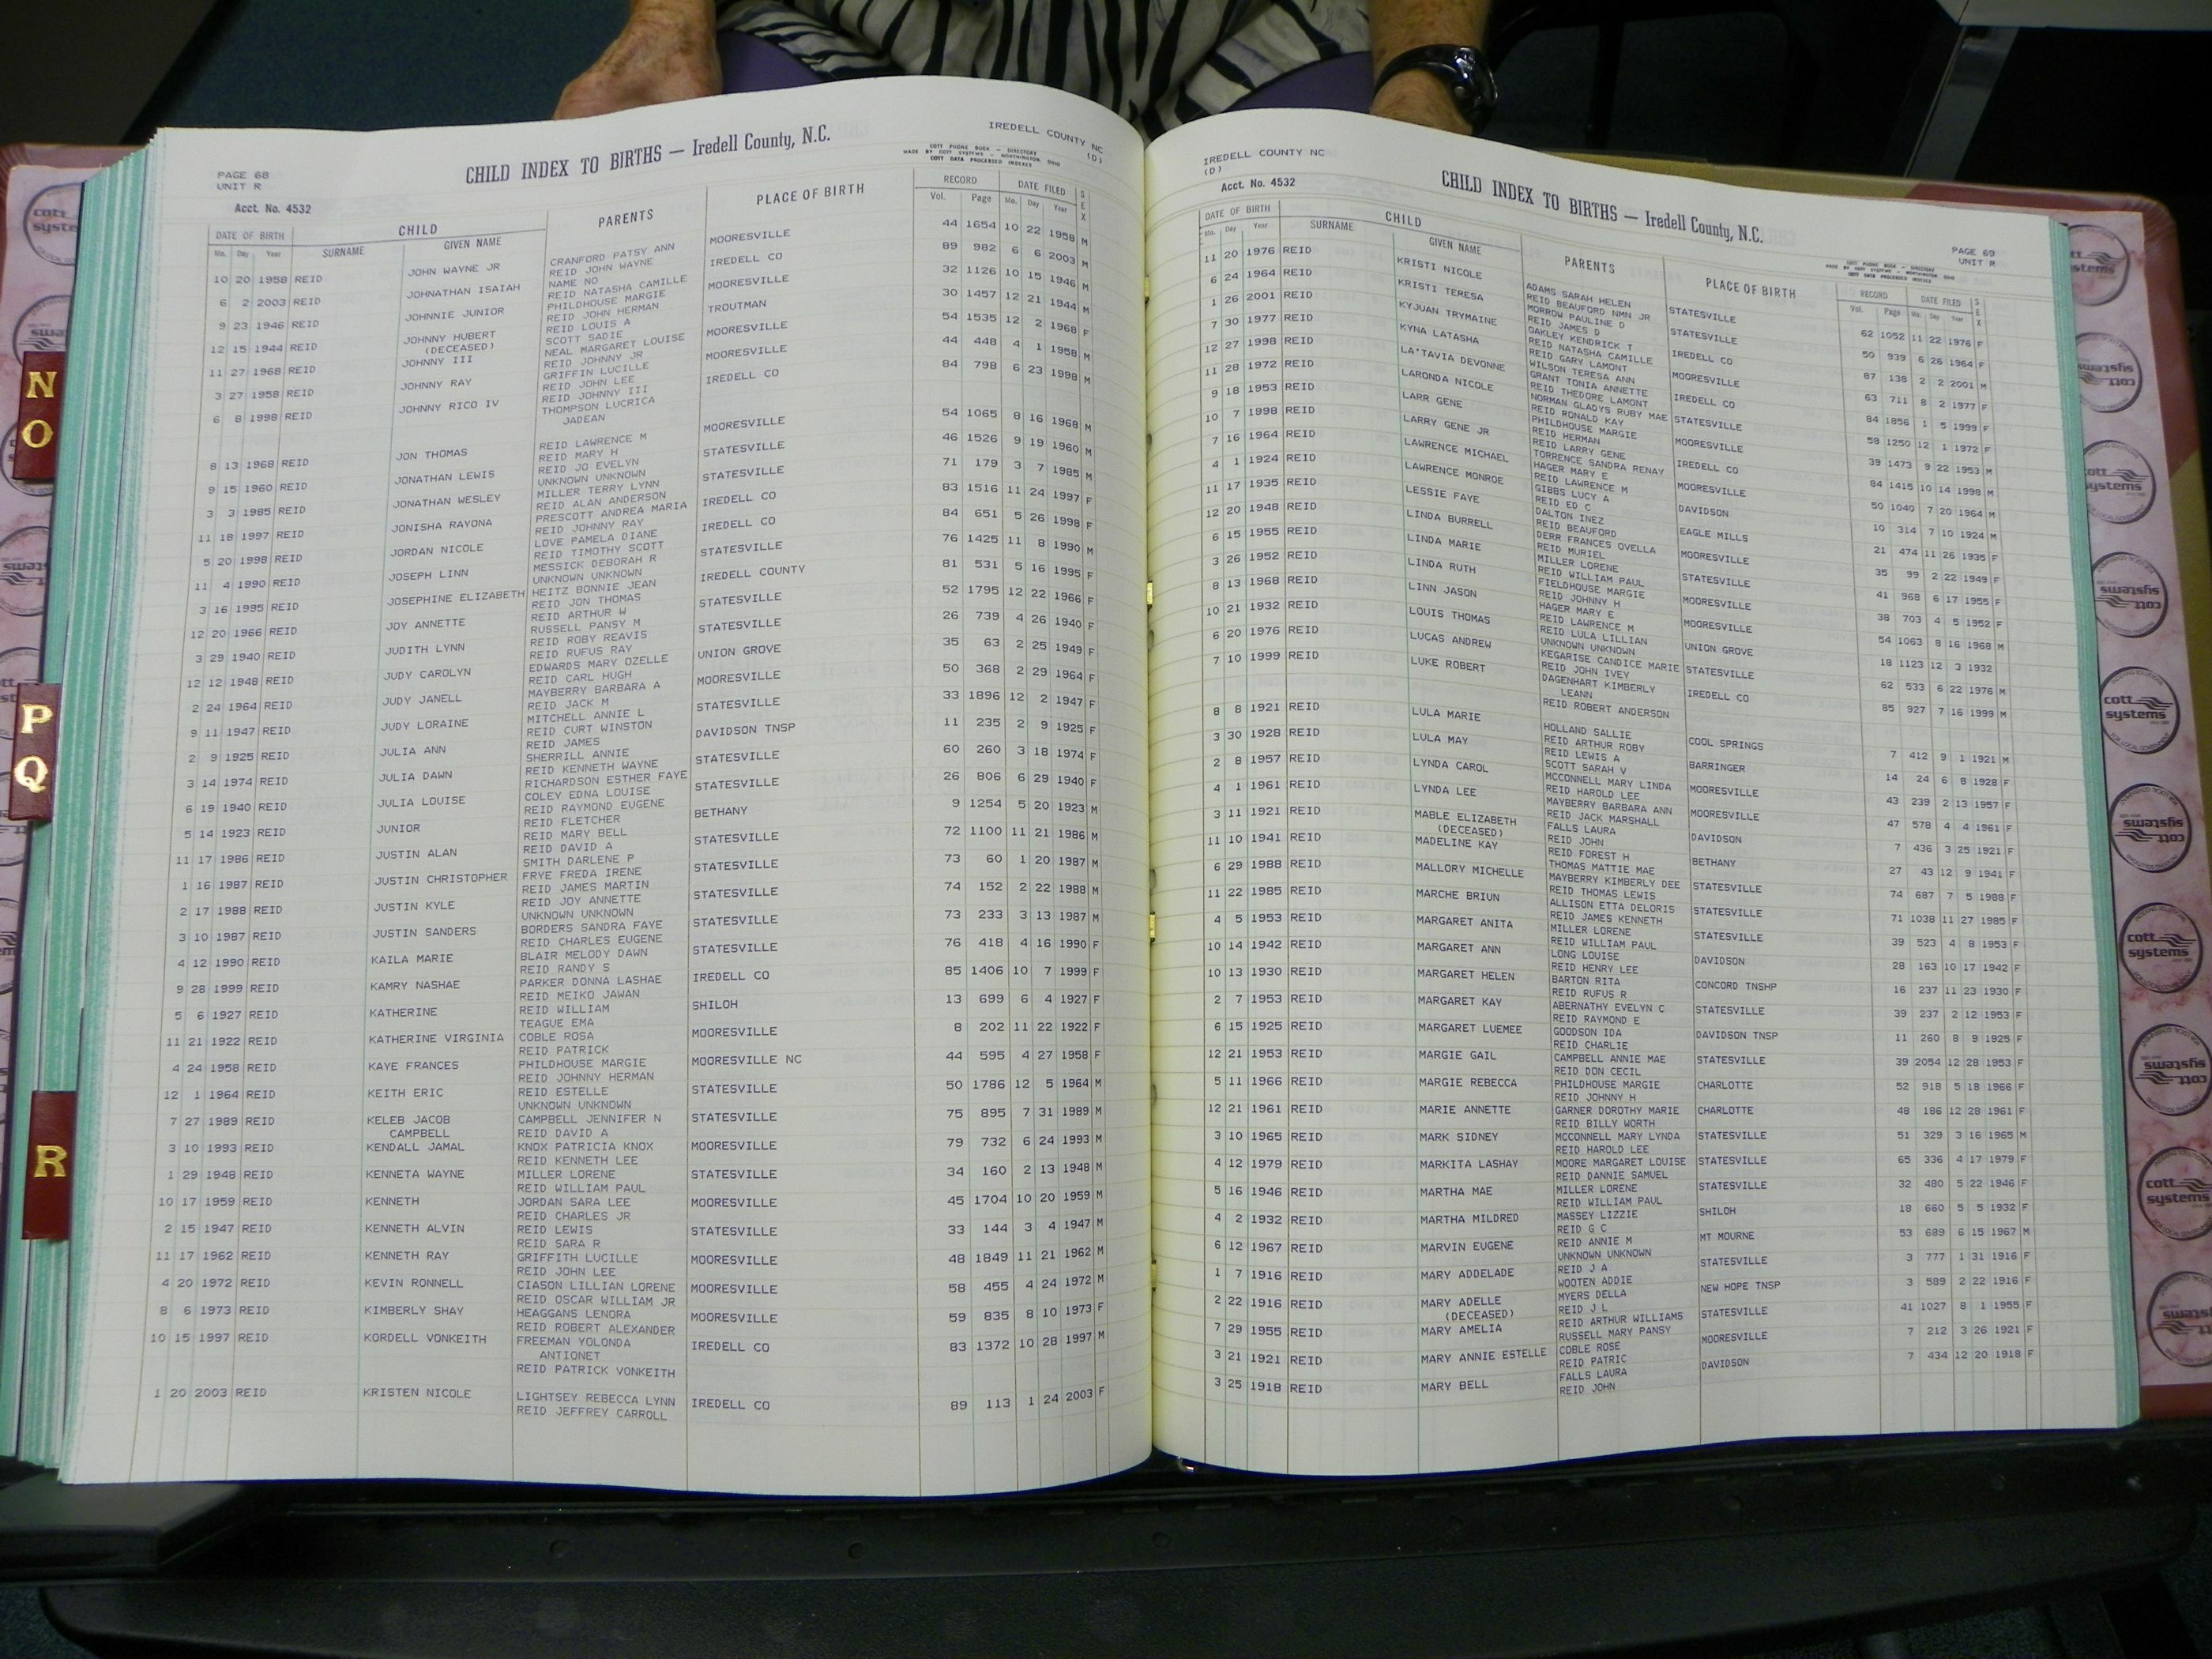 PAGE 68
UNIT R
Acct. No. 4532
CHILD INDEX TO BIRTHS — Iredell County, N.C.
IREDELL COUNTY NC
(D)
COTT PHONE BOOK — DIRECTORY
MADE BY COTT SYSTEMS — WORTHINGTON, OHIO
COTT DATA PROCESSED INDEXES
DATE OF BIRTH CHILD PARENTS PLACE OF BIRTH RECORD DATE FILED SEX
Mo. Day Year SURNAME GIVEN NAME Vol. Page Mo. Day Year
10 20 1958 REID JOHN WAYNE JR CRANFORD PATSY ANN MOORESVILLE 44 1654 10 22 1958 M
REID JOHN WAYNE
6 2 2003 REID JOHNATHAN ISAIAH NAME NO IREDELL CO 89 982 6 6 2003 M
REID NATASHA CAMILLE
9 23 1946 REID JOHNNIE JUNIOR PHILDHOUSE MARGIE MOORESVILLE 32 1126 10 15 1946 M
REID JOHN HERMAN
12 15 1944 REID JOHNNY HUBERT REID LOUIS A TROUTMAN 30 1457 12 21 1944 M
(DECEASED) SCOTT SADIE
11 27 1968 REID JOHNNY III NEAL MARGARET LOUISE MOORESVILLE 54 1535 12 2 1968 F
REID JOHNNY JR
3 27 1958 REID JOHNNY RAY GRIFFIN LUCILLE MOORESVILLE 44 448 4 1 1958 M
REID JOHN LEE
6 8 1998 REID JOHNNY RICO IV REID JOHNNY III IREDELL CO 84 798 6 23 1998 M
THOMPSON LUCRICA
JADEAN
8 13 1968 REID JON THOMAS REID LAWRENCE M MOORESVILLE 54 1065 8 16 1968 M
REID MARY H
9 15 1960 REID JONATHAN LEWIS REID JO EVELYN STATESVILLE 46 1526 9 19 1960 M
UNKNOWN UNKNOWN
3 3 1985 REID JONATHAN WESLEY MILLER TERRY LYNN STATESVILLE 71 179 3 7 1985 M
REID ALAN ANDERSON
11 18 1997 REID JONISHA RAYONA PRESCOTT ANDREA MARIA IREDELL CO 83 1516 11 24 1997 F
REID JOHNNY RAY
5 20 1998 REID JORDAN NICOLE LOVE PAMELA DIANE IREDELL CO 84 651 5 26 1998 F
REID TIMOTHY SCOTT
11 4 1990 REID JOSEPH LINN MESSICK DEBORAH R STATESVILLE 76 1425 11 8 1990 M
UNKNOWN UNKNOWN
3 16 1995 REID JOSEPHINE ELIZABETH HEITZ BONNIE JEAN IREDELL COUNTY 81 531 5 16 1995 F
REID JON THOMAS
12 20 1966 REID JOY ANNETTE REID ARTHUR W STATESVILLE 52 1795 12 22 1966 F
RUSSELL PANSY M
3 29 1940 REID JUDITH LYNN REID ROBY REAVIS STATESVILLE 26 739 4 26 1940 F
REID RUFUS RAY
12 12 1948 REID JUDY CAROLYN EDWARDS MARY OZELLE UNION GROVE 35 63 2 25 1949 F
REID CARL HUGH
2 24 1964 REID JUDY JANELL MAYBERRY BARBARA A MOORESVILLE 50 368 2 29 1964 F
REID JACK M
9 11 1947 REID JUDY LORAINE MITCHELL ANNIE L STATESVILLE 33 1896 12 2 1947 F
REID CURT WINSTON
2 9 1925 REID JULIA ANN REID JAMES DAVIDSON TNSP 11 235 2 9 1925 F
SHERRILL ANNIE
3 14 1974 REID JULIA DAWN REID KENNETH WAYNE STATESVILLE 60 260 3 18 1974 F
RICHARDSON ESTHER FAYE
6 19 1940 REID JULIA LOUISE COLEY EDNA LOUISE STATESVILLE 26 806 6 29 1940 F
REID RAYMOND EUGENE
5 14 1923 REID JUNIOR REID FLETCHER BETHANY 9 1254 5 20 1923 M
REID MARY BELL
11 17 1986 REID JUSTIN ALAN REID DAVID A STATESVILLE 72 1100 11 21 1986 M
SMITH DARLENE P
1 16 1987 REID JUSTIN CHRISTOPHER FRYE FREDA IRENE STATESVILLE 73 60 1 20 1987 M
REID JAMES MARTIN
2 17 1988 REID JUSTIN KYLE REID JOY ANNETTE STATESVILLE 74 152 2 22 1988 M
UNKNOWN UNKNOWN
3 10 1987 REID JUSTIN SANDERS BORDERS SANDRA FAYE STATESVILLE 73 233 3 13 1987 M
REID CHARLES EUGENE
4 12 1990 REID KAILA MARIE BLAIR MELODY DAWN STATESVILLE 76 418 4 16 1990 F
REID RANDY S
9 28 1999 REID KAMRY NASHAE PARKER DONNA LASHAE IREDELL CO 85 1406 10 7 1999 F
REID MEIKO JAWAN
5 6 1927 REID KATHERINE REID WILLIAM SHILOH 13 699 6 4 1927 F
TEAGUE EMA
11 21 1922 REID KATHERINE VIRGINIA COBLE ROSA MOORESVILLE 8 202 11 22 1922 F
REID PATRICK
4 24 1958 REID KAYE FRANCES PHILDHOUSE MARGIE MOORESVILLE NC 44 595 4 27 1958 F
REID JOHNNY HERMAN
12 1 1964 REID KEITH ERIC REID ESTELLE STATESVILLE 50 1786 12 5 1964 M
UNKNOWN UNKNOWN
7 27 1989 REID KELEB JACOB CAMPBELL JENNIFER N STATESVILLE 75 895 7 31 1989 M
CAMPBELL REID DAVID A
3 10 1993 REID KENDALL JAMAL KNOX PATRICIA KNOX MOORESVILLE 79 732 6 24 1993 M
REID KENNETH LEE
1 29 1948 REID KENNETA WAYNE MILLER LORENE STATESVILLE 34 160 2 13 1948 M
REID WILLIAM PAUL
10 17 1959 REID KENNETH JORDAN SARA LEE MOORESVILLE 45 1704 10 20 1959 M
REID CHARLES JR
2 15 1947 REID KENNETH ALVIN REID LEWIS STATESVILLE 33 144 3 4 1947 M
REID SARA R
11 17 1962 REID KENNETH RAY GRIFFITH LUCILLE MOORESVILLE 48 1849 11 21 1962 M
REID JOHN LEE
4 20 1972 REID KEVIN RONNELL CIASON LILLIAN LORENE MOORESVILLE 58 455 4 24 1972 M
REID OSCAR WILLIAM JR
8 6 1973 REID KIMBERLY SHAY HEAGGANS LENORA MOORESVILLE 59 835 8 10 1973 F
REID ROBERT ALEXANDER
10 15 1997 REID KORDELL VONKEITH FREEMAN YOLONDA IREDELL CO 83 1372 10 28 1997 M
ANTIONET
REID PATRICK VONKEITH
1 20 2003 REID KRISTEN NICOLE LIGHTSEY REBECCA LYNN IREDELL CO 89 113 1 24 2003 F
REID JEFFREY CARROLL
IREDELL COUNTY NC
(D)
Acct. No. 4532
CHILD INDEX TO BIRTHS — Iredell County, N.C.
PAGE 69
UNIT R
COTT PHONE BOOK — DIRECTORY
MADE BY COTT SYSTEMS — WORTHINGTON, OHIO
COTT DATA PROCESSED INDEXES
DATE OF BIRTH CHILD PARENTS PLACE OF BIRTH RECORD DATE FILED SEX
Mo. Day Year SURNAME GIVEN NAME Vol. Page Mo. Day Year
11 20 1976 REID KRISTI NICOLE ADAMS SARAH HELEN STATESVILLE 62 1052 11 22 1976 F
REID BEAUFORD NMN JR
6 24 1964 REID KRISTI TERESA MORROW PAULINE D STATESVILLE 50 939 6 26 1964 F
REID JAMES D
1 26 2001 REID KYJUAN TRYMAINE OAKLEY KENDRICK T IREDELL CO 87 138 2 2 2001 M
REID NATASHA CAMILLE
7 30 1977 REID KYNA LATASHA REID GARY LAMONT MOORESVILLE 63 711 8 2 1977 F
WILSON TERESA ANN
12 27 1998 REID LA'TAVIA DEVONNE GRANT TONIA ANNETTE IREDELL CO 84 1856 1 5 1999 F
REID THEDORE LAMONT
11 28 1972 REID LARONDA NICOLE NORMAN GLADYS RUBY MAE STATESVILLE 58 1250 12 1 1972 F
REID RONALD KAY
9 18 1953 REID LARR GENE PHILDHOUSE MARGIE MOORESVILLE 39 1473 9 22 1953 M
REID HERMAN
10 7 1998 REID LARRY GENE JR REID LARRY GENE IREDELL CO 84 1415 10 14 1998 M
TORRENCE SANDRA RENAY
7 16 1964 REID LAWRENCE MICHAEL HAGER MARY E MOORESVILLE 50 1040 7 20 1964 M
REID LAWRENCE M
4 1 1924 REID LAWRENCE MONROE GIBBS LUCY A DAVIDSON 10 314 7 10 1924 M
REID ED C
11 17 1935 REID LESSIE FAYE DALTON INEZ EAGLE MILLS 21 474 11 26 1935 F
REID BEAUFORD
12 20 1948 REID LINDA BURRELL DERR FRANCES OVELLA MOORESVILLE 35 99 2 22 1949 F
REID MURIEL
6 15 1955 REID LINDA MARIE MILLER LORENE STATESVILLE 41 968 6 17 1955 F
REID WILLIAM PAUL
3 26 1952 REID LINDA RUTH FIELDHOUSE MARGIE MOORESVILLE 38 703 4 5 1952 F
REID JOHNNY H
8 13 1968 REID LINN JASON HAGER MARY E MOORESVILLE 54 1063 8 16 1968 M
REID LAWRENCE M
10 21 1932 REID LOUIS THOMAS REID LULA LILLIAN UNION GROVE 18 1123 12 3 1932
UNKNOWN UNKNOWN
6 20 1976 REID LUCAS ANDREW KEGARISE CANDICE MARIE STATESVILLE 62 533 6 22 1976 M
REID JOHN IVEY
7 10 1999 REID LUKE ROBERT DAGENHART KIMBERLY IREDELL CO 85 927 7 16 1999 M
LEANN
REID ROBERT ANDERSON
8 8 1921 REID LULA MARIE HOLLAND SALLIE COOL SPRINGS 7 412 9 1 1921 M
REID ARTHUR ROBY
3 30 1928 REID LULA MAY REID LEWIS A BARRINGER 14 24 6 8 1928 F
SCOTT SARAH V
2 8 1957 REID LYNDA CAROL MCCONNELL MARY LINDA MOORESVILLE 43 239 2 13 1957 F
REID HAROLD LEE
4 1 1961 REID LYNDA LEE MAYBERRY BARBARA ANN MOORESVILLE 47 578 4 4 1961 F
REID JACK MARSHALL
3 11 1921 REID MABLE ELIZABETH FALLS LAURA DAVIDSON 7 436 3 25 1921 F
(DECEASED) REID JOHN
11 10 1941 REID MADELINE KAY REID FOREST H BETHANY 27 43 12 9 1941 F
THOMAS MATTIE MAE
6 29 1988 REID MALLORY MICHELLE MAYBERRY KIMBERLY DEE STATESVILLE 74 687 7 5 1988 F
REID THOMAS LEWIS
11 22 1985 REID MARCHE BRIUN ALLISON ETTA DELORIS STATESVILLE 71 1038 11 27 1985 F
REID JAMES KENNETH
4 5 1953 REID MARGARET ANITA MILLER LORENE STATESVILLE 39 523 4 8 1953 F
REID WILLIAM PAUL
10 14 1942 REID MARGARET ANN LONG LOUISE DAVIDSON 28 163 10 17 1942 F
REID HENRY LEE
10 13 1930 REID MARGARET HELEN BARTON RITA CONCORD TNSHP 16 237 11 23 1930 F
REID RUFUS R
2 7 1953 REID MARGARET KAY ABERNATHY EVELYN C STATESVILLE 39 237 2 12 1953 F
REID RAYMOND E
6 15 1925 REID MARGARET LUEMEE GOODSON IDA DAVIDSON TNSP 11 260 8 9 1925 F
REID CHARLIE
12 21 1953 REID MARGIE GAIL CAMPBELL ANNIE MAE STATESVILLE 39 2054 12 28 1953 F
REID DON CECIL
5 11 1966 REID MARGIE REBECCA PHILDHOUSE MARGIE CHARLOTTE 52 918 5 18 1966 F
REID JOHNNY H
12 21 1961 REID MARIE ANNETTE GARNER DOROTHY MARIE CHARLOTTE 48 186 12 28 1961 F
REID BILLY WORTH
3 10 1965 REID MARK SIDNEY MCCONNELL MARY LYNDA STATESVILLE 51 329 3 16 1965 M
REID HAROLD LEE
4 12 1979 REID MARKITA LASHAY MOORE MARGARET LOUISE STATESVILLE 65 336 4 17 1979 F
REID DANNIE SAMUEL
5 16 1946 REID MARTHA MAE MILLER LORENE STATESVILLE 32 480 5 22 1946 F
REID WILLIAM PAUL
4 2 1932 REID MARTHA MILDRED MASSEY LIZZIE SHILOH 18 660 5 5 1932 F
REID G C
6 12 1967 REID MARVIN EUGENE REID ANNIE M MT MOURNE 53 689 6 15 1967 M
UNKNOWN UNKNOWN
1 7 1916 REID MARY ADDELADE REID J A STATESVILLE 3 777 1 31 1916 F
WOOTEN ADDIE
2 22 1916 REID MARY ADELLE MYERS DELLA NEW HOPE TNSP 3 589 2 22 1916 F
(DECEASED) REID J L
7 29 1955 REID MARY AMELIA REID ARTHUR WILLIAMS STATESVILLE 41 1027 8 1 1955 F
RUSSELL MARY PANSY
3 21 1921 REID MARY ANNIE ESTELLE COBLE ROSE MOORESVILLE 7 212 3 26 1921 F
REID PATRIC
3 25 1918 REID MARY BELL FALLS LAURA DAVIDSON 7 434 12 20 1918 F
REID JOHN
N
O
P
Q
R
cott
systems
cott
systems
cott
systems
cott
systems